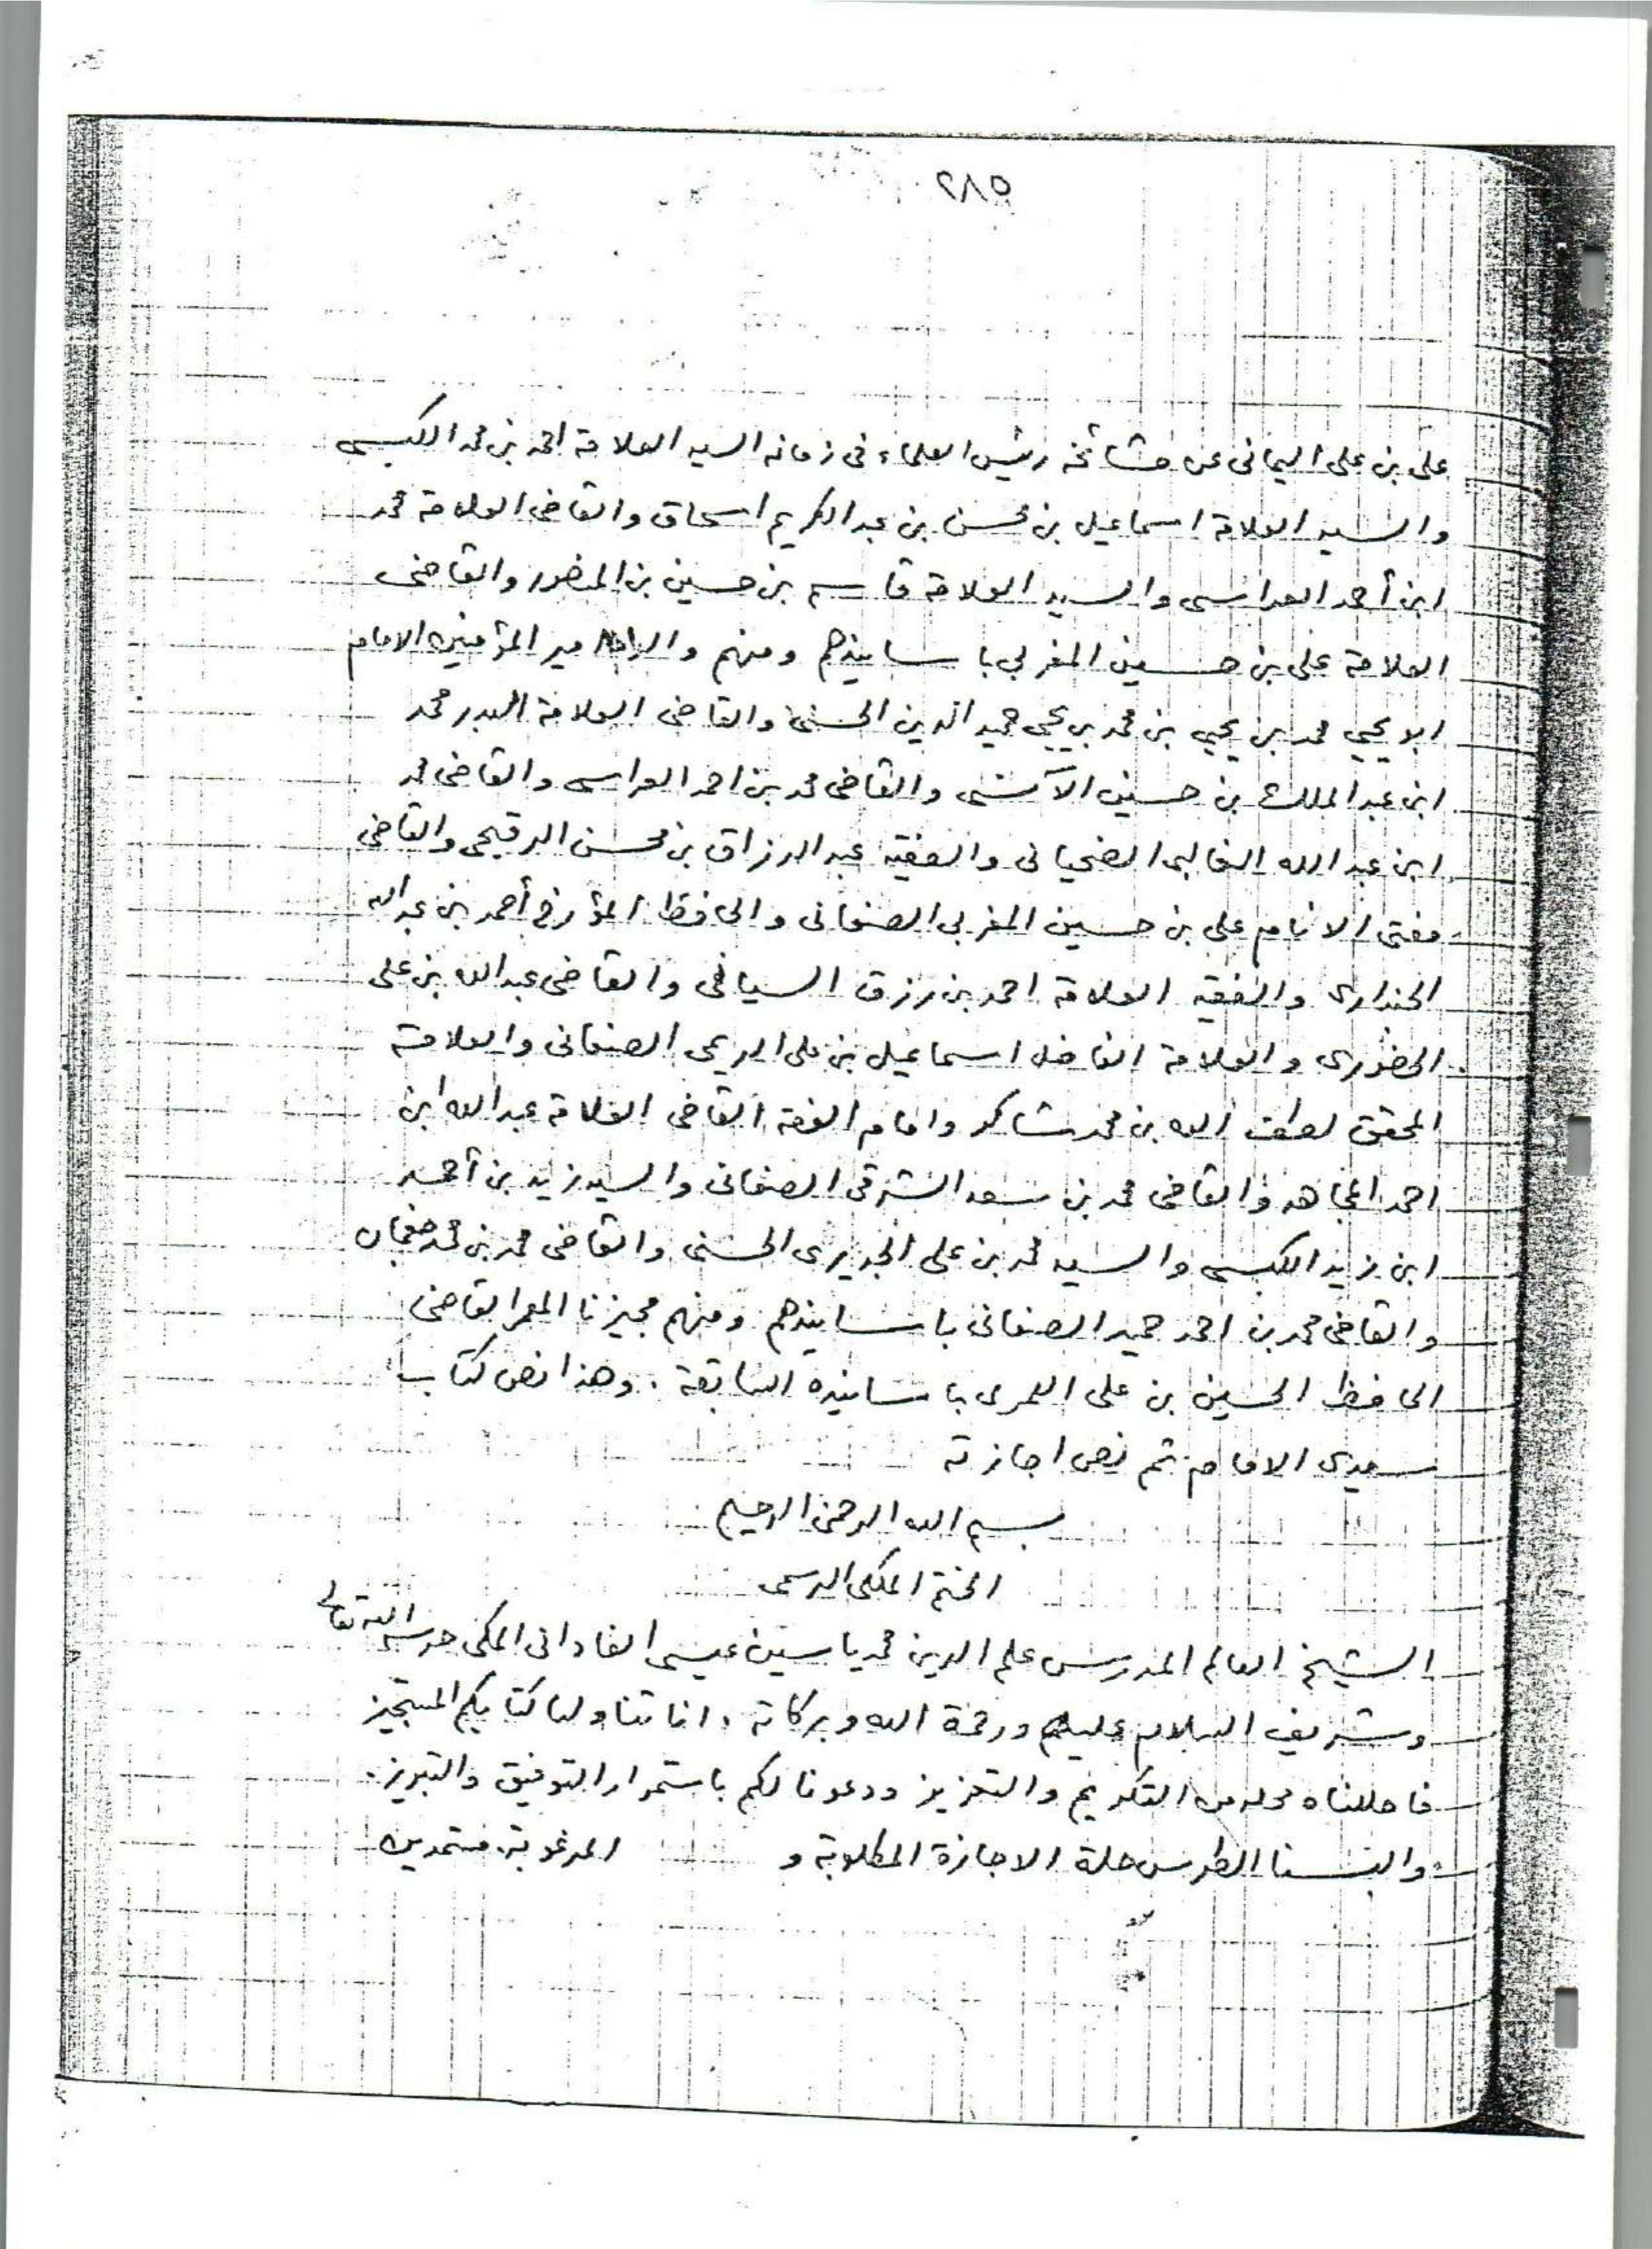 ٢٨٥
على بن على اليمانى عن مشائخه رئيس العلماء فى زمانه السيد العلامة احمد بن محمد الكبسى
والسيد العلامة اسماعيل بن محسن بن عبد الكريم اسحاق والقاضى العلامة محمد
ابن أحمد العراسى والسيد العلامة قاسم بن حسين بن المنصور والقاضى
العلامة على بن حسين المغربى باسانيدهم ومنهم والده امير المؤمنين الامام
ابو يحيى محمد بن يحيى بن محمد بن يحيى حميد الدين الحسنى والقاضى العلامة البدر محمد
ابن عبد الملك بن حسين الآنسى والقاضى محمد بن احمد العراسى والقاضى محمد
ابن عبد الله الغالبى الضحيانى والفقيه عبد الرزاق بن محسن الرقيحى والقاضى
مفتى الانام على بن حسين المغربى الصنعانى والحافظ المؤرخ أحمد بن عبد الله
الجندارى والفقيه العلامة احمد بن رزق السياغى والقاضى عبد الله بن على
الحضورى والعلامة الفاضل اسماعيل بن على الريمى الصنعانى والعلامة
المحقق لطف الله بن محمد شاكر وامام الفقه القاضى العلامة عبد الله ابن
احمد المجاهد والقاضى محمد بن سعد الشرقى الصنعانى والسيد زيد بن أحمد
ابن زيد الكبسى والسيد محمد بن على الجديرى الحسنى والقاضى محمد بن محمد جغمان
والقاضى محمد بن احمد حميد الصنعانى باسانيدهم ومنهم مجيزنا المعمر القاضى
الحافظ الحسين بن على العمرى باسانيده السابقة . وهذا نص كتاب
سيدى الامام ثم نص اجازته
بسم الله الرحمن الرحيم
الختم الملكى الرسمى
الشيخ العالم المدرس علم الدين محمد ياسين عيسى الفادانى المكى حرسه الله تعالى
وشريف السلام عليكم ورحمة الله وبركاته . انا تناولنا كتابكم المستجيز
فاحللناه محله من التكريم والتعزيز ودعونا لكم باستمرار التوفيق والتبريز.
والبسنا الطرس حلة الاجازة المطلوبة و المرغوبة، مستمدين